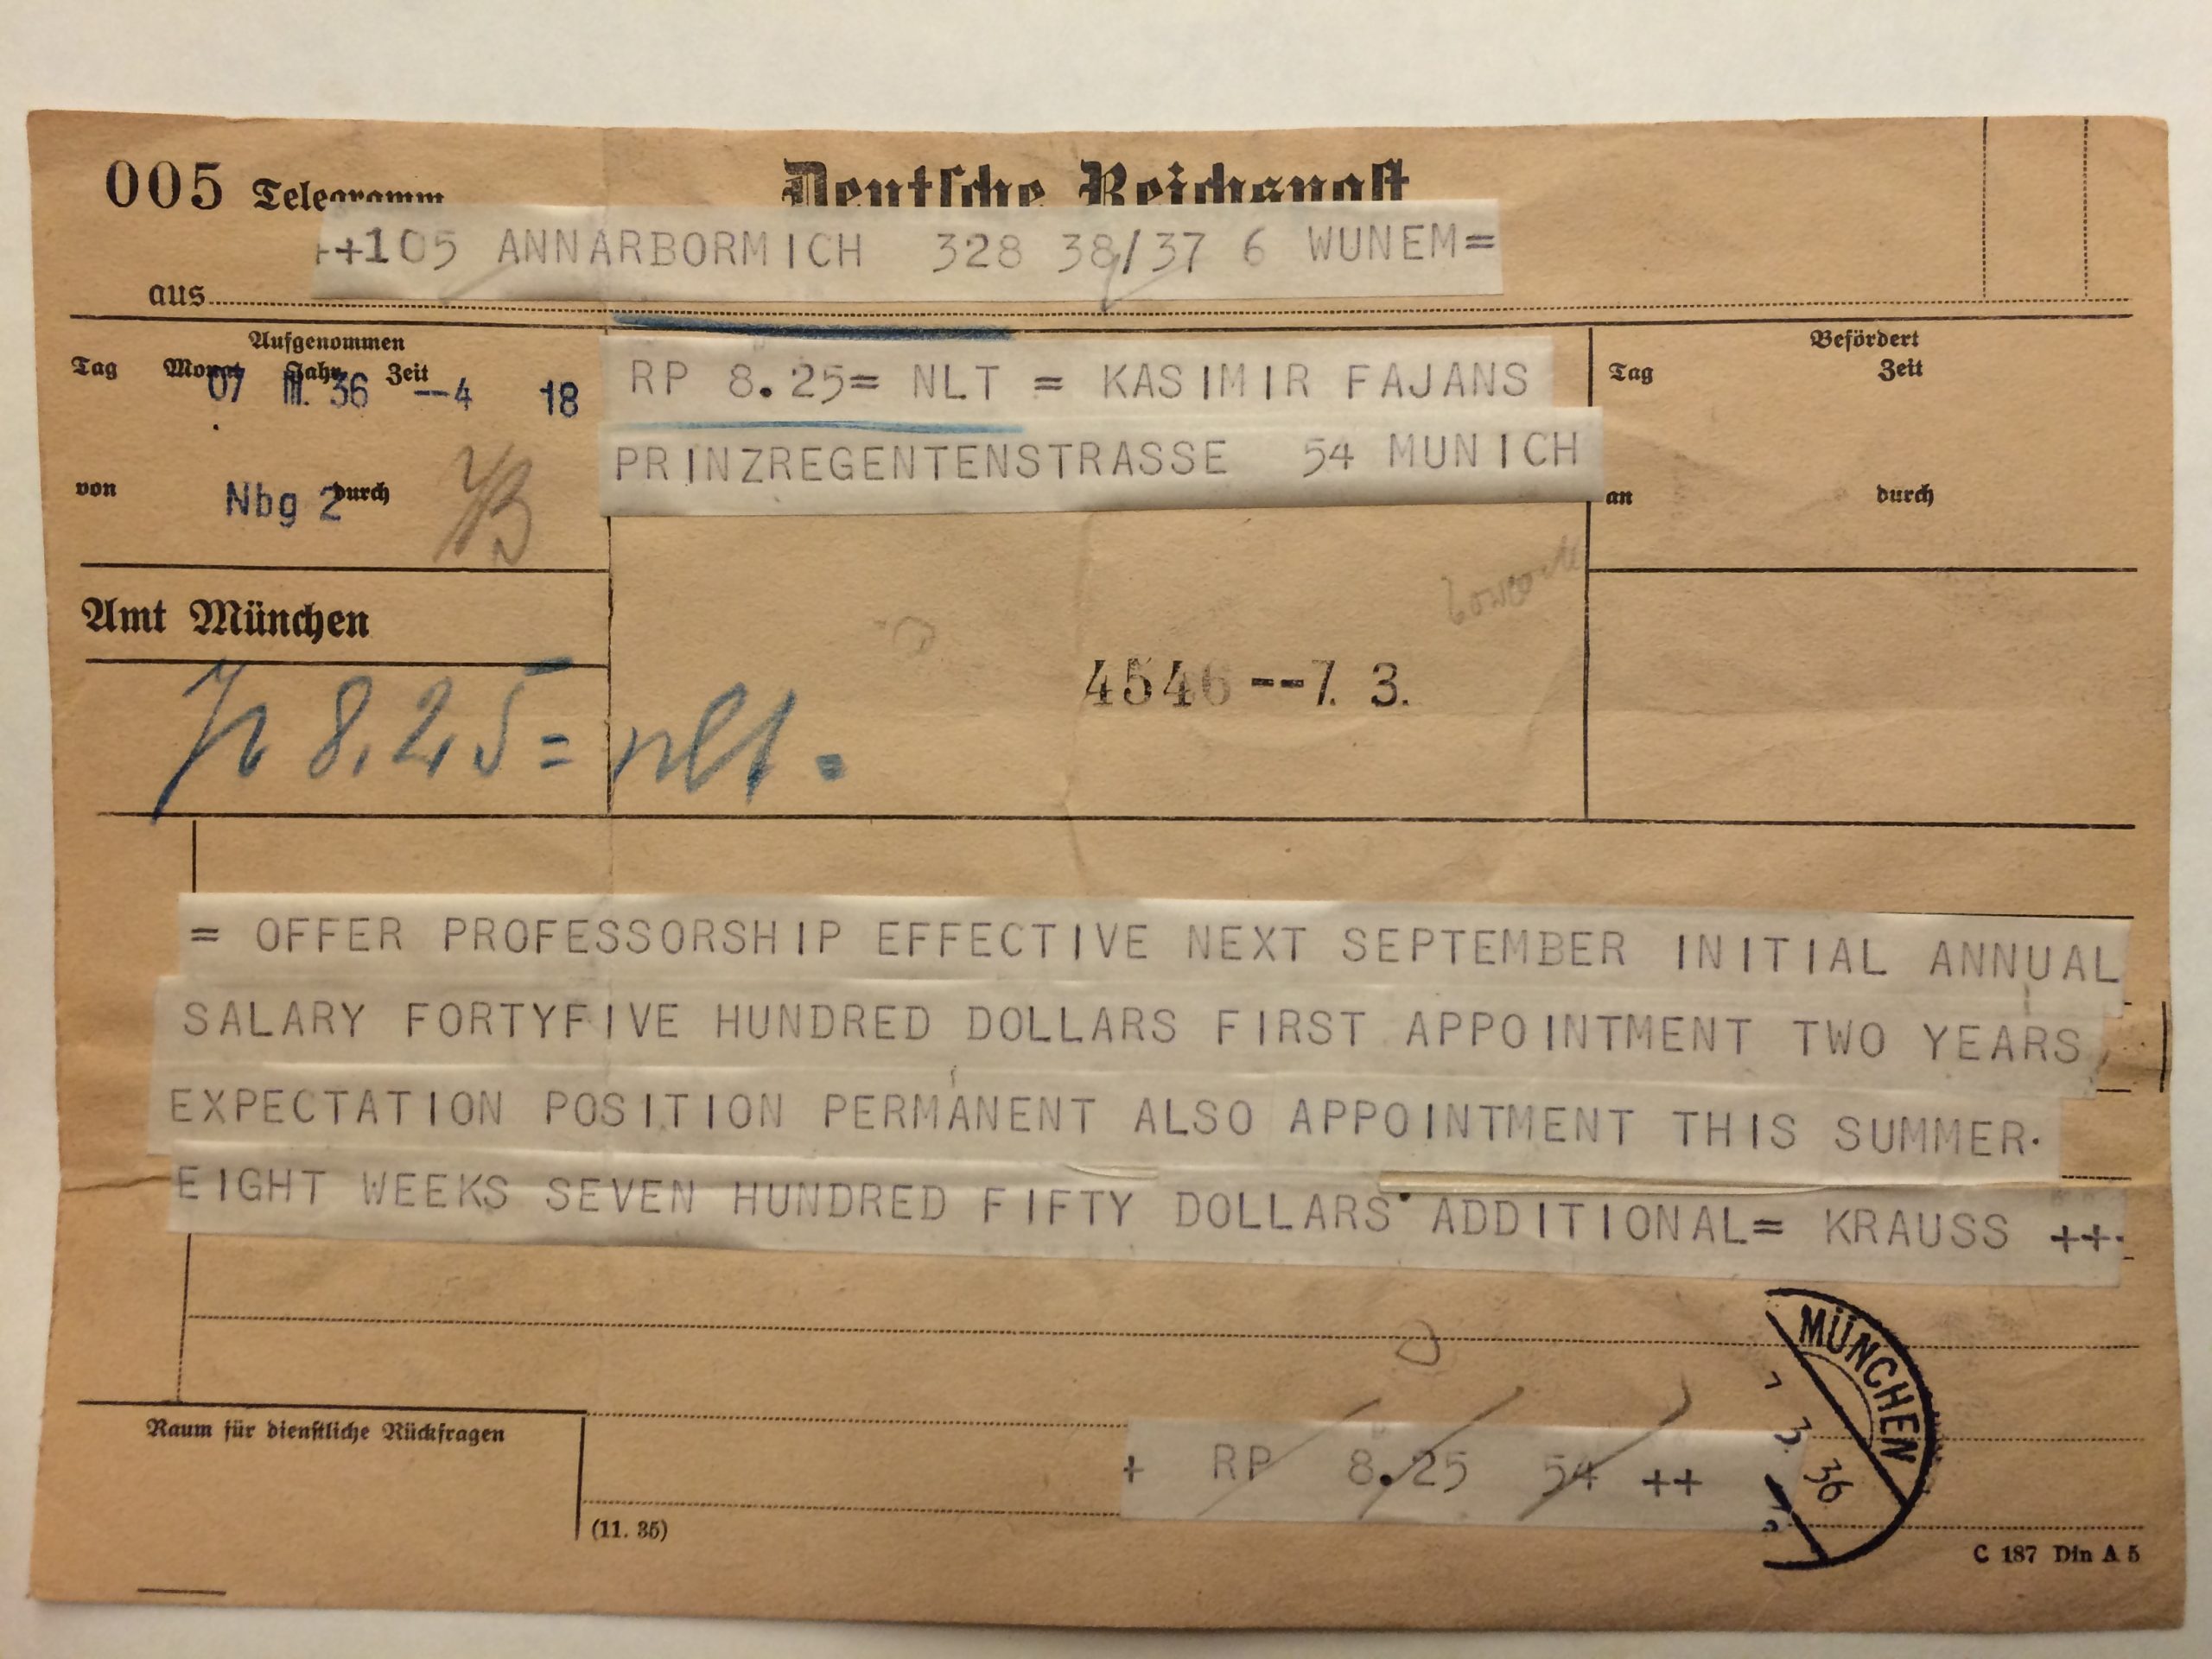 005 Telegramm Deutsche Reichspost
++105 ANNARBORMICH 328 38/37 6 WUNEM=
aus
Aufgenommen
Tag Monat Jahr Zeit
07 III. 36 --4 18
RP 8.25= NLT = KASIMIR FAJANS
PRINZREGENTENSTRASSE 54 MUNICH
Befördert
Tag Zeit
von Nbg 2 durch
an durch
Amt München
4546 --7. 3.
8,25 = nlt.
= OFFER PROFESSORSHIP EFFECTIVE NEXT SEPTEMBER INITIAL ANNUAL
SALARY FORTYFIVE HUNDRED DOLLARS FIRST APPOINTMENT TWO YEARS
EXPECTATION POSITION PERMANENT ALSO APPOINTMENT THIS SUMMER
EIGHT WEEKS SEVEN HUNDRED FIFTY DOLLARS ADDITIONAL= KRAUSS ++
MÜNCHEN
7 3. 36
Raum für dienstliche Rückfragen
+ RP 8.25 54 ++
(11. 35)
C 187 Din A 5